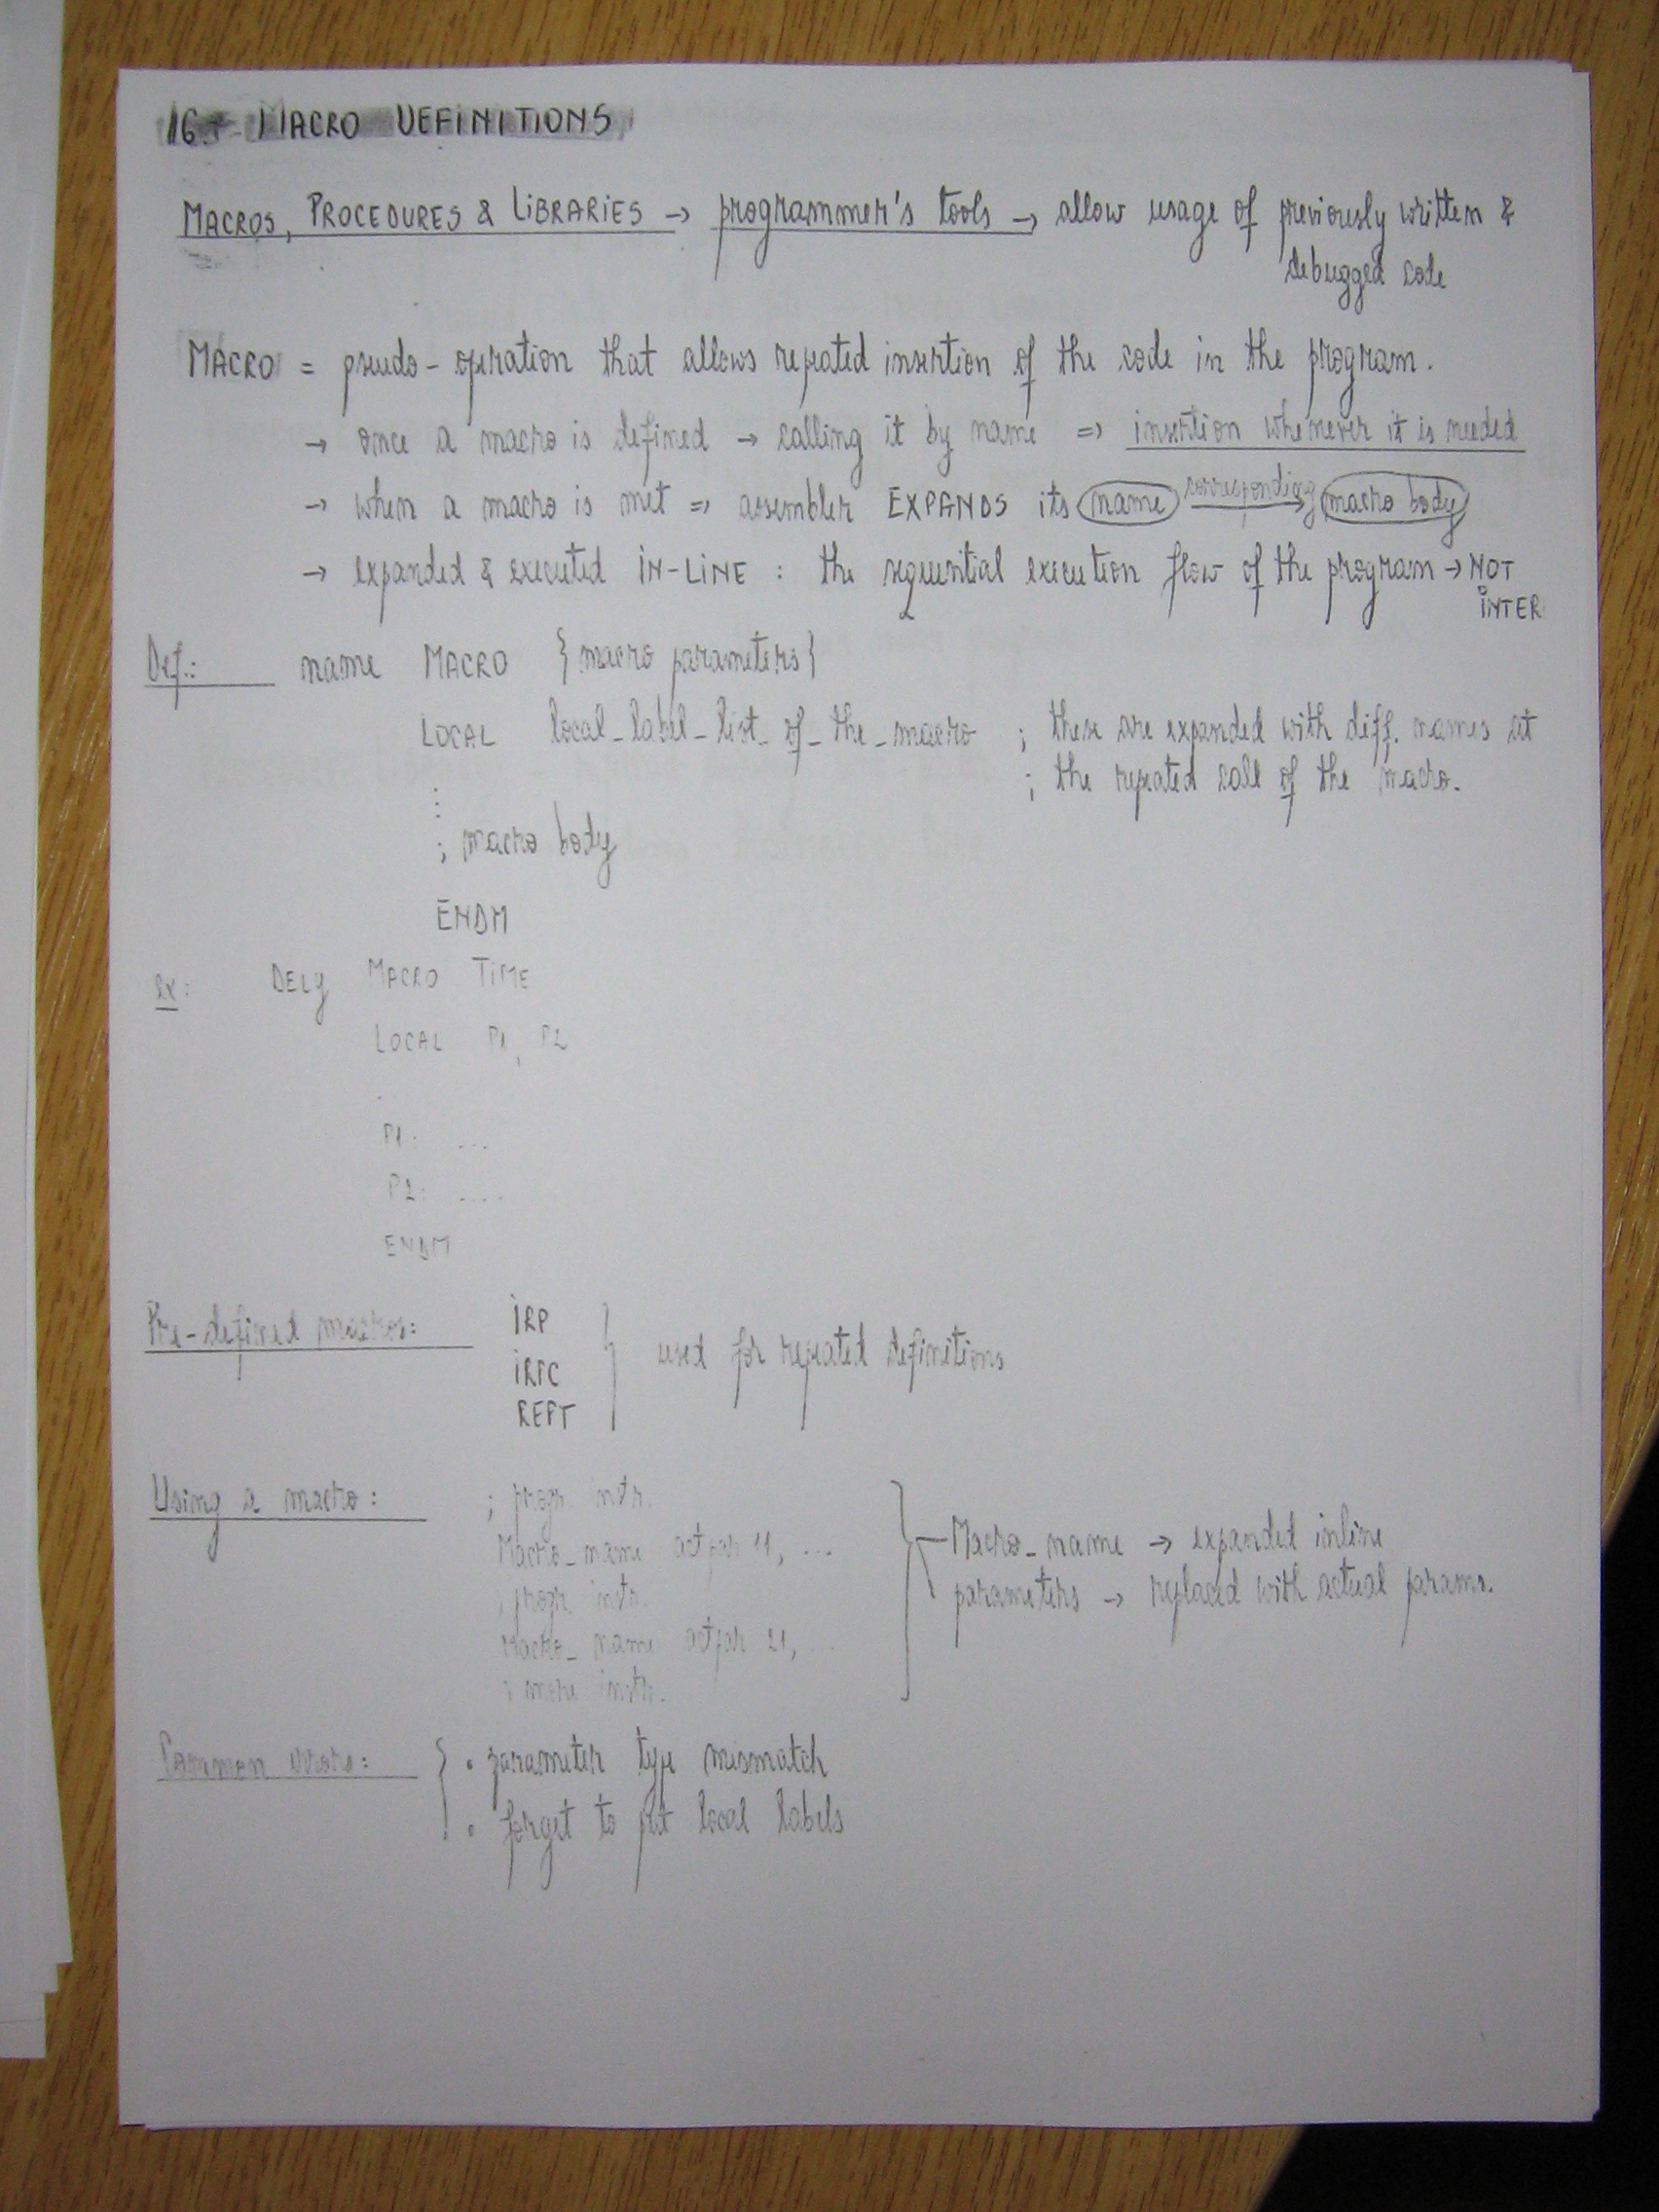 16. MACRO DEFINITIONS
MACROS, PROCEDURES & LIBRARIES → programmer's tools → allow usage of previously written &
debugged code
MACRO = pseudo-operation that allows repeated insertion of the code in the program.
→ once a macro is defined → calling it by name => insertion whenever it is needed
→ when a macro is met => assembler EXPANDS its name corresponding macro body
→ expanded & executed IN-LINE : the sequential execution flow of the program → NOT
INTER
Def.: name MACRO {macro parameters}
LOCAL local_label_list_of_the_macro ; these are expanded with diff. names at
; the repeated call of the macro.
⋮
; macro body
ENDM
ex: DELy MACRO TIME
LOCAL P1, P2
.
P1: ...
P2: ....
ENDM
Pre-defined macros: IRP
IRPC } used for repeated definitions
REPT
Using a macro: ; progr. instr.
Macro_name actpar 11, ...
; progr. instr.
Macro_name actpar 21, ...
; more instr.
Macro_name → expanded inline
parameters → replaced with actual params.
Common errors: { • parameter type mismatch
• forget to put local labels